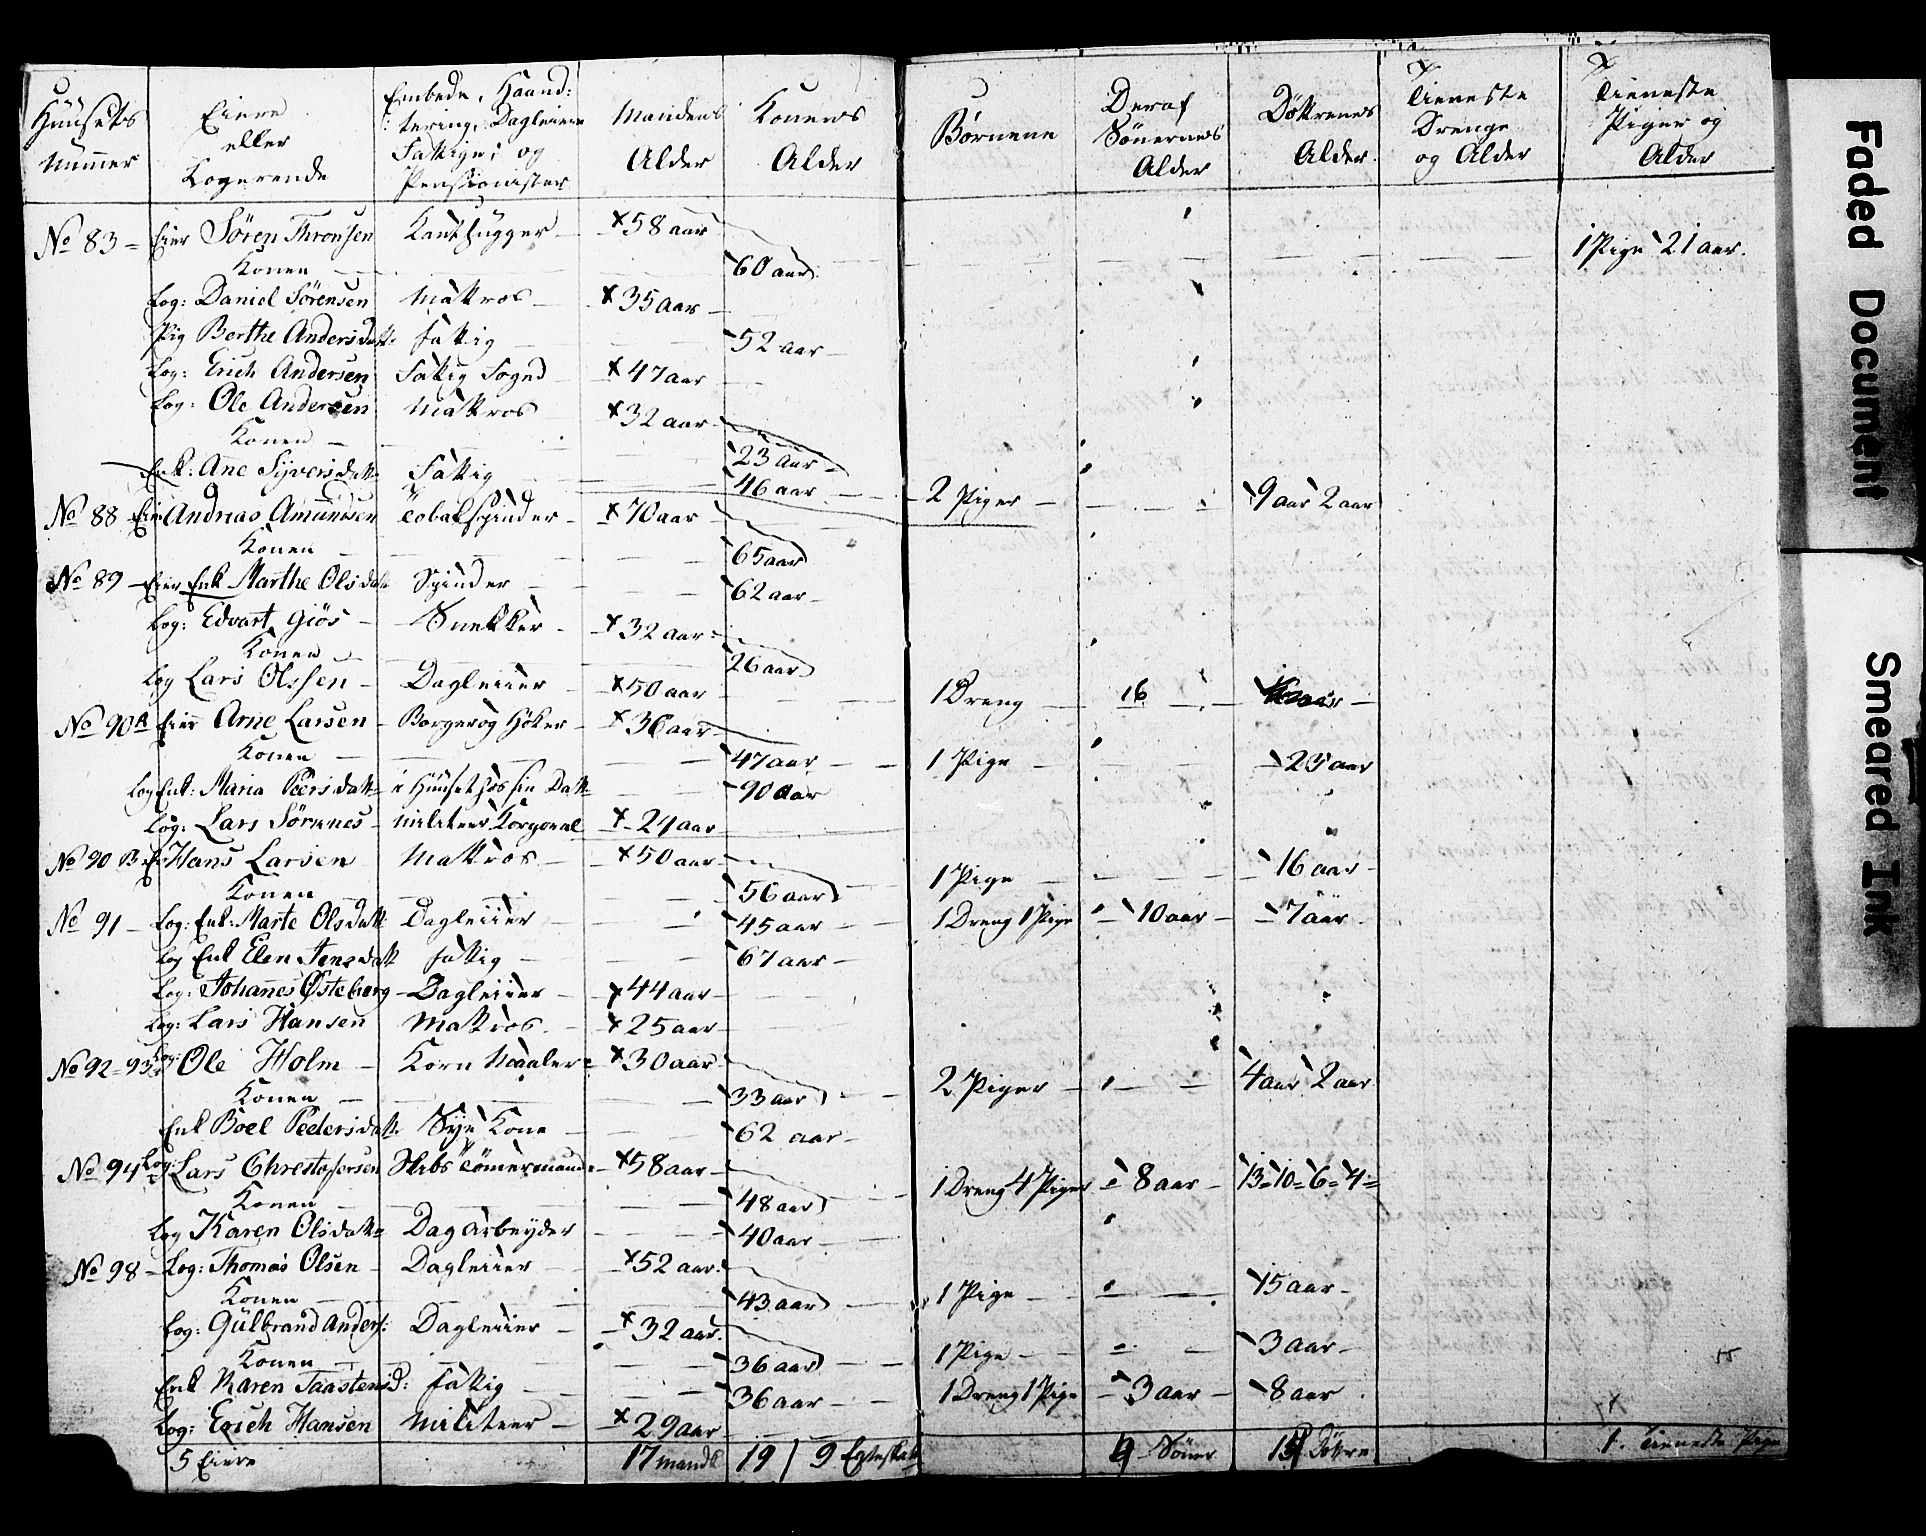 Huusets Nummer | Eiere eller Logerende | Embede, Haand:tering, Dagleiere Fattige; og Pensionister | Mandens Alder | Konens Alder | Børnene | Deraf Sönernes Alder | Døttrenes Alder. | Tieneste Drenge og Alder | Tieneste Piger og Alder
No 83 = Eier Sören Thronsen | Kanthugger | 58 aar | 1 Pige 21 aar.
Konen | 60 aar
Log: Daniel Sörensen | Matros | 35 aar
Pig Berthe Andersdatt: | fattig | 52 aar
Log: Erich Andersen | Fattig Fogd | 47 aar
Log: Ole Andersen | Matros | 32 aar
Konen | 23 aar
Enk: Ane Sijversdatt | Fattig | 46 aar | 2 Piger | 9 aar 2 aar
No 88 Eier Andreas Amundsen | Tobakspinder | 70 aar
Konen | 65 aar
No 89 Eier Enk Marthe Olsdatt | Spinder | 62 aar
Log: Edvart Giös | Snekker | 32 aar
Konen | 26 aar
Log Lars Olssen | Dagleiier | 50 aar | 1 Dreng | 16
No 90 A Eier Arne Larsen | Borger og Höker | 36 aar
Konen | 47 aar | 1 Pige | 23 aar
Log Enk: Maria Peersdatt | i Huuset hos sin Datt | 90 aar
Log: Lars Sörenes | Militeer Korporal | 24 aar
No 90 B Eier Hans Larsen | Matros | 50 aar
Konen | 56 aar | 1 Pige | 16 aar
No 91 Log: Enk: Marte Olsdatt | Dagleiier | 45 aar | 1 Dreng 1 Pige | 10 aar | 7 aar
Log Enk Elen Jensdatt | fattig | 67 aar
Log: Johannes Østeberg | Dagleiier | 44 aar
Log: Lars Hansen | Matros. | 25 aar
No 92 = 93 Log: Ole Holm | Korn Maaler | 30 aar
Konen | 33 aar | 2 Piger | 4 aar 2 aar
Enk Boel Pedersdatt | Syе Kone | 62 aar
No 94 Log: Lars Chrestofersen | Skibs Tömermand | 58 aar
Konen | 48 aar | 1 Dreng 4 Piger | 8 aar | 13 = 10 = 6 = 4 =
Log Karen Olsdatt | Dag Arbeyder | 40 aar
No 98 Log: Thomas Olsen | Dagleiier | 52 aar
Konen | 43 aar | 1 Pige | 15 aar
Log: Gulbrand Anders: | Dagleiier | 32 aar.
Konen | 36 aar | 1 Pige | 3 aar
Enk Karen Taastensd: | fattig | 36 aar | 1 Dreng 1 Pige | 3 aar | 8 aar
Log: Erich Hansen | Militeer | 29 aar
5 Eiere | 17 mand | 19 / 9 Egteskab | Söner | Döttre | 1. Tieneste Pige
55
Faded Document
Smeared Ink